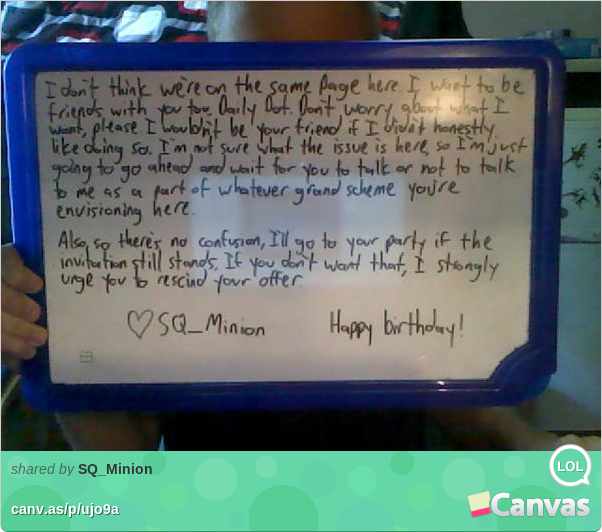 I don't think we're on the same page here. I want to be
friends with you too, Daily Dot. Don't worry about what I
want, please. I wouldn't be your friend if I didn't honestly
like doing so. I'm not sure what the issue is here, so I'm just
going to go ahead and wait for you to talk or not to talk
to me as a part of whatever grand scheme you're
envisioning here.
Also, so there's no confusion, I'll go to your party if the
invitation still stands. If you don't want that, I strongly
urge you to rescind your offer.
♡ SQ_Minion Happy birthday!
shared by SQ_Minion
LOL
canv.as/p/ujo9a
Canvas